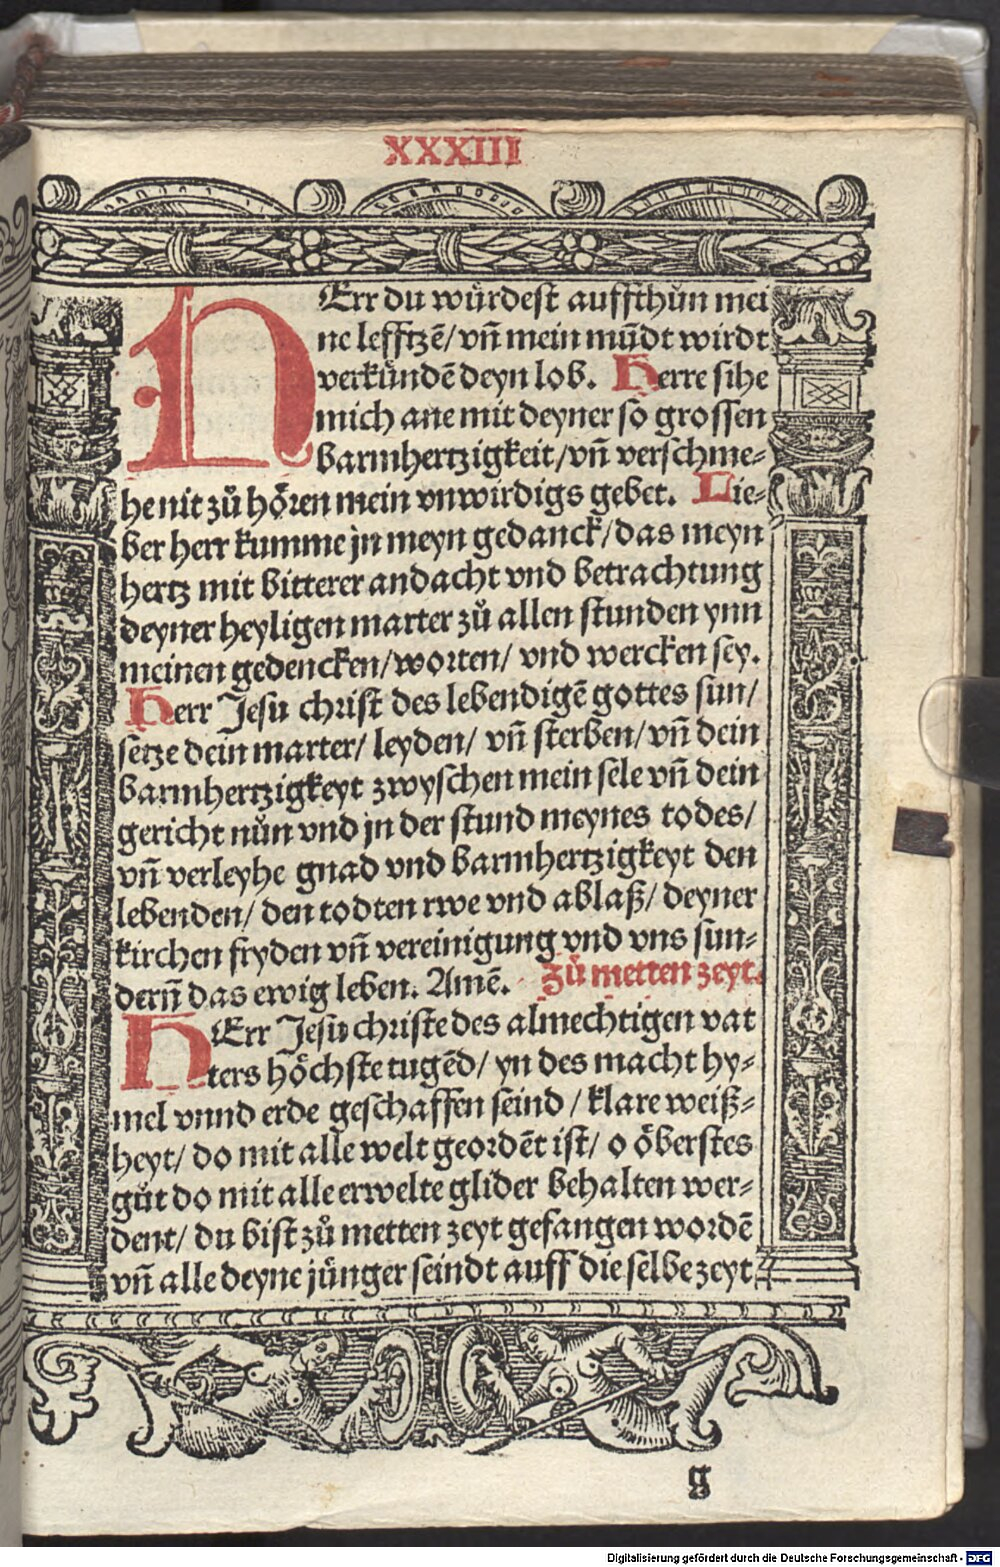 XXXIII
HErr du wůrdest auffthůn mei
ne lefftzē/ vn̄ mein mūdt wirdt
verkündē deyn lob. Herre sihe
mich ane mit deyner so grossen
barmhertzigkeit/ vn̄ verschme-
he nit zů hören mein vnwirdigs gebet. Lie-
ber herr kumme jn meyn gedanck/ das meyn
hertz mit bitterer andacht vnd betrachtung
deyner heyligen marter zů allen stunden ynn
meinen gedencken/ worten/ vnd wercken sey.
Herr Jesu christ des lebendigē gottes sun/
setze dein marter/ leyden/ vn̄ sterben/ vn̄ dein
barmhertzigkeyt zwyschen mein sele vn̄ dein
gericht nůn vnd jn der stund meynes todes/
vn̄ verleyhe gnad vnd barmhertzigkeyt den
lebenden/ den todten rwe vnd ablaß/ deyner
kirchen fryden vn̄ vereinigung vnd vns sun-
dern̄ das ewig leben. Amē. zů metten zeyt.
HErr Jesu christe des almechtigen vat
ters höchste tugēd/ yn des macht hy-
mel vnnd erde geschaffen seind / klare weiß-
heyt/ do mit alle welt geordēt ist/ o öberstes
gůt do mit alle erwelte glider behalten wer-
dent/ du bist zů metten zeyt gefangen wordē
vn̄ alle deyne jünger seindt auff die selbe zeyt
g
Digitalisierung gefördert durch die Deutsche Forschungsgemeinschaft - DFG